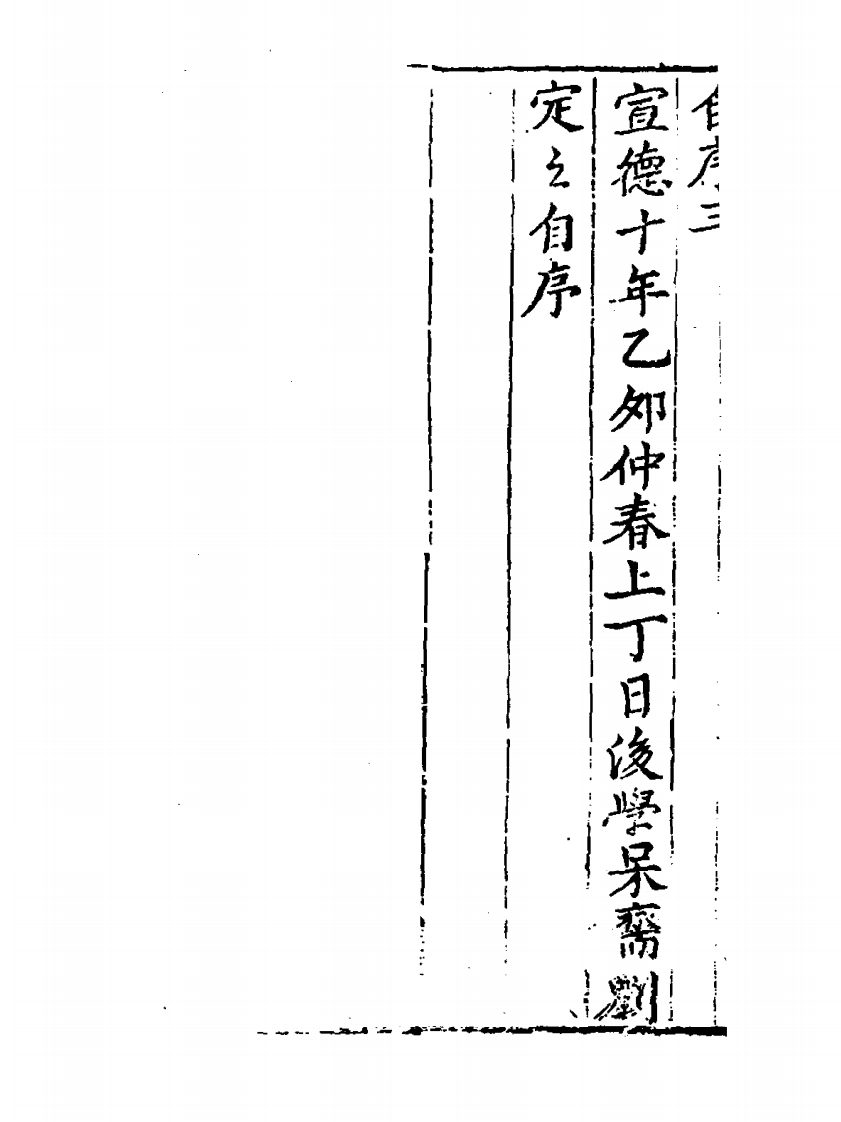 自序三
宣德十年乙夘仲春上丁日後學呆齋劉
定之自序